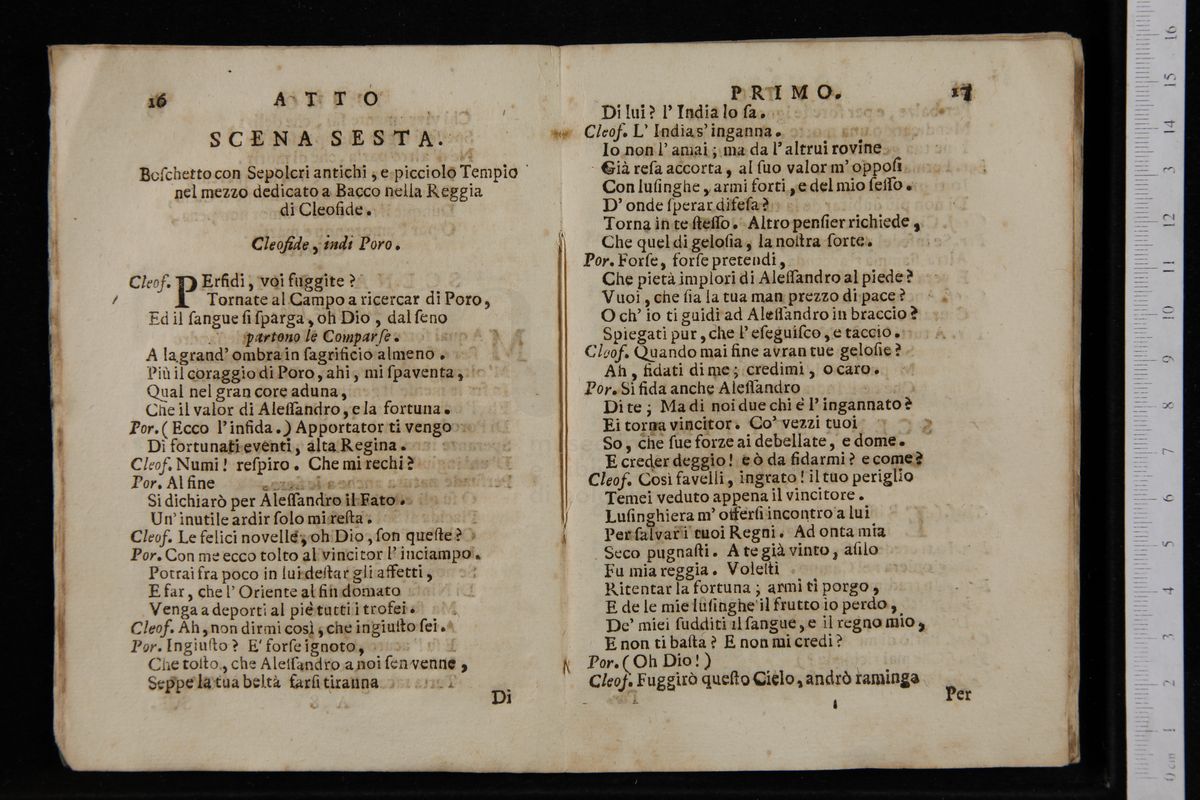 16
ATTO
SCENA SESTA.
Boſchetto con Sepolcri antichi, e picciolo Tempio
nel mezzo dedicato a Bacco nella Reggia
di Cleofide.
Cleofide, indi Poro.
Cleof. PErfidi, voi fuggite?
Tornate al Campo a ricercar di Poro,
Ed il ſangue ſi ſparga, oh Dio, dal ſeno
partono le Comparſe.
A la grand' ombra in ſagrificio almeno.
Più il coraggio di Poro, ahi, mi ſpaventa,
Qual nel gran core aduna,
Che il valor di Aleſſandro, e la fortuna.
Por. (Ecco l'infida.) Apportator ti vengo
Di fortunati eventi, alta Regina.
Cleof. Numi! reſpiro. Che mi rechi?
Por. Al fine
Si dichiarò per Aleſſandro il Fato.
Un' inutile ardir ſolo mi reſta.
Cleof. Le felici novelle, oh Dio, ſon queſte?
Por. Con me ecco tolto al vincitor l' inciampo.
Potrai fra poco in lui deſtar gli affetti,
E far, che l' Oriente al fin domato
Venga a deporti al piè tutti i trofei.
Cleof. Ah, non dirmi così, che ingiuſto ſei.
Por. Ingiuſto? E' forſe ignoto,
Che toſto, che Aleſſandro a noi ſen venne,
Seppe la tua beltà farſi tiranna
Di
PRIMO.
17
Di lui? l' India lo ſa.
Cleof. L' India s' inganna.
Io non l' amai; ma da l' altrui rovine
Già reſa accorta, al ſuo valor m' oppoſi
Con luſinghe, armi forti, e del mio ſeſſo.
D' onde ſperar difeſa?
Torna in te ſteſſo. Altro penſier richiede,
Che quel di geloſia, la noſtra ſorte.
Por. Forſe, forſe pretendi,
Che pietà implori di Aleſſandro al piede?
Vuoi, che ſia la tua man prezzo di pace?
O ch' io ti guidi ad Aleſſandro in braccio?
Spiegati pur, che l' eſeguiſco, e taccio.
Cleof. Quando mai fine avran tue geloſie?
Ah, fidati di me; credimi, o caro.
Por. Si fida anche Aleſſandro
Di te; Ma di noi due chi è l' ingannato?
Ei torna vincitor. Co' vezzi tuoi
So, che ſue forze ai debellate, e dome.
E creder deggio! e ò da fidarmi? e come?
Cleof. Così favelli, ingrato! il tuo periglio
Temei veduto appena il vincitore.
Luſinghiera m' offerſi incontro a lui
Per ſalvar i tuoi Regni. Ad onta mia
Seco pugnaſti. A te già vinto, aſilo
Fu mia reggia. Voleſti
Ritentar la fortuna; armi ti porgo,
E de le mie luſinghe il frutto io perdo,
De' miei ſudditi il ſangue, e il regno mio,
E non ti baſta? E non mi credi?
Por. (Oh Dio!)
Cleof. Fuggirò queſto Cielo, andrò raminga
Per
0 cm 1 2 3 4 5 6 7 8 9 10 11 12 13 14 15 16